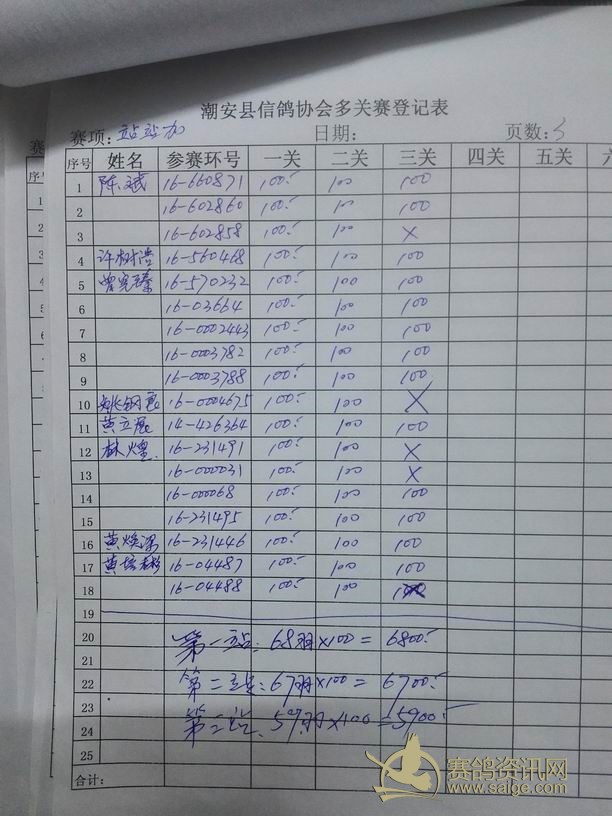 潮安县信鸽协会多关赛登记表
赛项: 站站加 日期: 页数: 3
序号 姓名 参赛环号 一关 二关 三关 四关 五关 六
1 陈斌 16-660871 100- 100 100
2 16-602860 100- 100 100
3 16-602858 100- 100 ×
4 许树浩 16-560468 100- 100 100
5 曾宪臻 16-570232 100- 100 100
6 16-03664 100- 100 100
7 16-0002443 100- 100 100
8 16-0003782 100- 100 100
9 16-0003788 100- 100 100
10 16-0004675 100- 100 ×
11 黄立 14-426364 100- 100 100
12 林煌 16-231491 100- 100 ×
13 16-000031 100- 100 ×
14 16-00068 100- 100 100
15 16-231495 100- 100 100
16 黄焕 16-231446 100- 100 100
17 黄 16-04487 100- 100 100
18 16-04488 100- 100
19
20 第一站: 68羽×100= 6800-
21
22 第二站: 67羽×100= 6700-
23
24 第三站: 59羽×100=5900-
25
合计:
赛鸽资讯网
www.saige.com